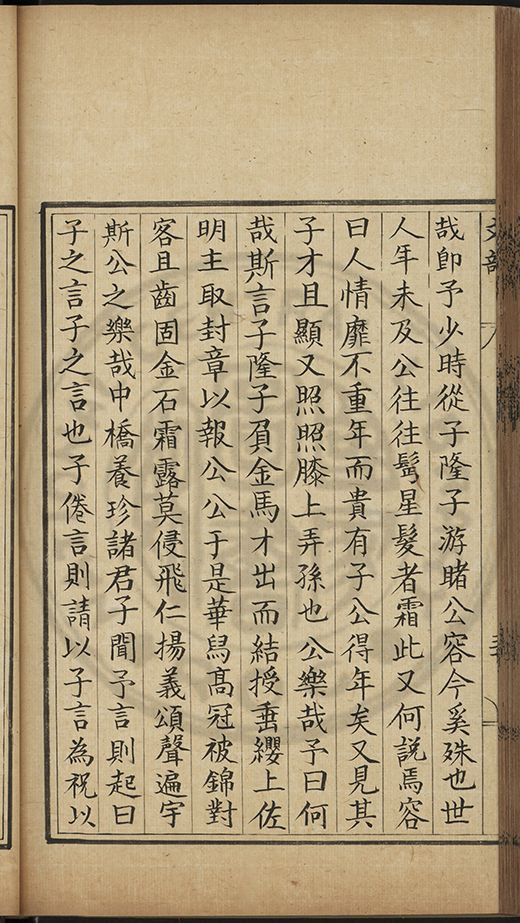 哉卽予少時從子隆子游睹公容今奚殊也世
人年未及公往往髩星髮者霜此又何説焉容
曰人情靡不重年而貴有子公得年矣又見其
子才且顯又照照膝上弄孫也公樂哉予曰何
哉斯言子隆子負金馬才出而結授垂纓上佐
明主取封章以報公公于是華舄髙冠被錦對
客且齒固金石霜露莫侵飛仁揚義頌聲遍宇
斯公之樂哉中橋養珍諸君子聞予言則起曰
子之言子之言也子倦言則請以子言為祝以